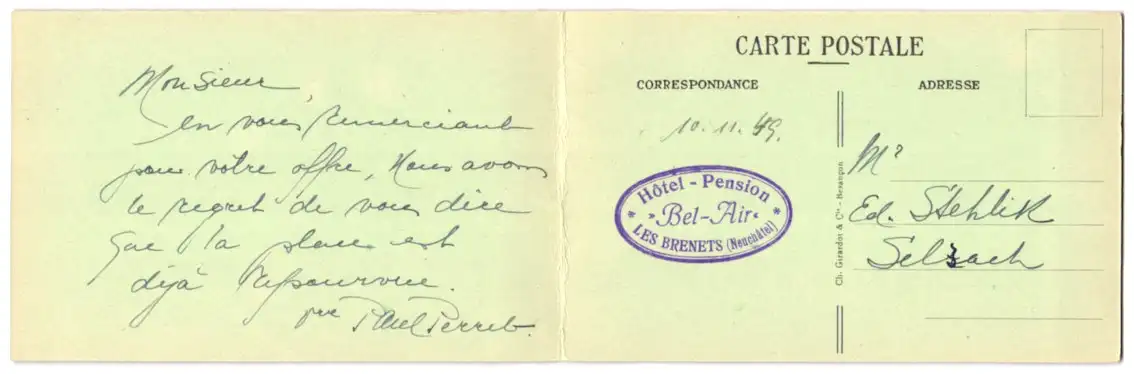 Monsieur,
en vous remerciant
pour votre offre, Nous avons
le regret de vous dire
que la place est
déjà repourvue.
par Paul Perret.
CARTE POSTALE
CORRESPONDANCE
ADRESSE
10.11.49.
Hôtel - Pension
Bel-Air
LES BRENETS (Neuchâtel)
Ch. Girardot & Cie - Besançon
Mr
Ed. Stehlik
Selzach